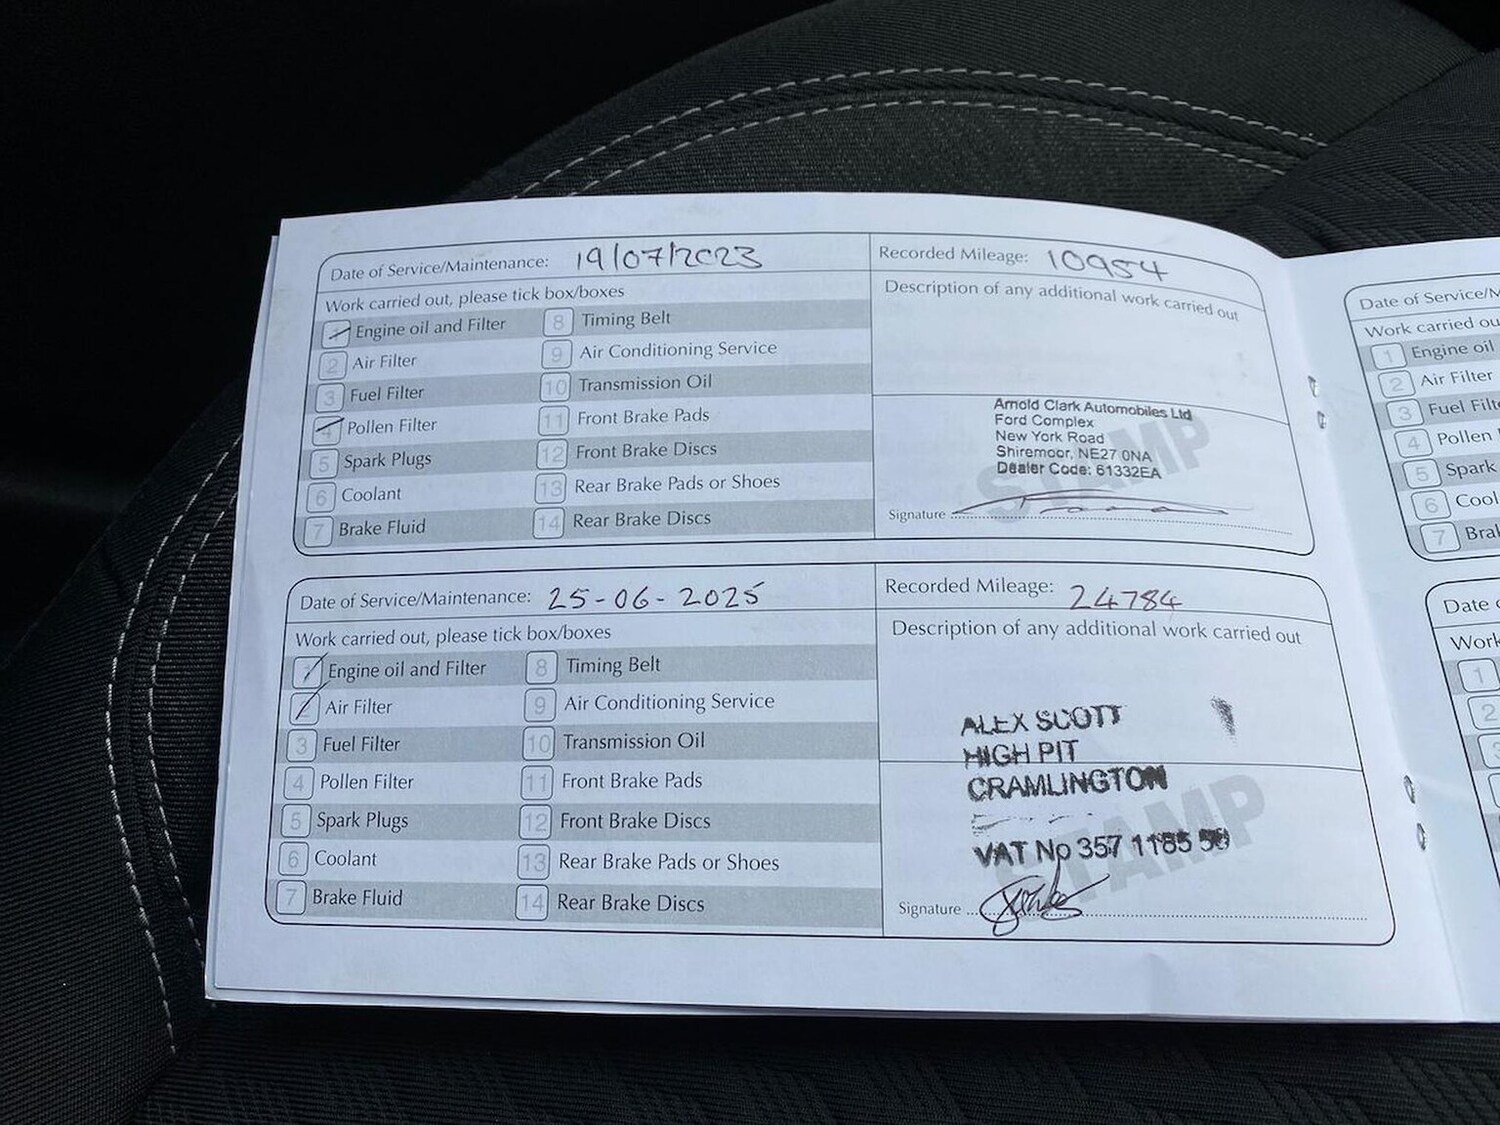 Date of Service/Maintenance: 19/07/2023
Recorded Mileage: 10954
Work carried out, please tick box/boxes
Description of any additional work carried out
1 Engine oil and Filter
8 Timing Belt
2 Air Filter
9 Air Conditioning Service
3 Fuel Filter
10 Transmission Oil
4 Pollen Filter
11 Front Brake Pads
5 Spark Plugs
12 Front Brake Discs
6 Coolant
13 Rear Brake Pads or Shoes
7 Brake Fluid
14 Rear Brake Discs
STAMP
Arnold Clark Automobiles Ltd
Ford Complex
New York Road
Shiremoor, NE27 0NA
Dealer Code: 61332EA
Signature
Date of Service/Maintenance: 25-06-2025
Recorded Mileage: 24784
Work carried out, please tick box/boxes
Description of any additional work carried out
1 Engine oil and Filter
8 Timing Belt
2 Air Filter
9 Air Conditioning Service
3 Fuel Filter
10 Transmission Oil
4 Pollen Filter
11 Front Brake Pads
5 Spark Plugs
12 Front Brake Discs
6 Coolant
13 Rear Brake Pads or Shoes
7 Brake Fluid
14 Rear Brake Discs
STAMP
ALEX SCOTT
HIGH PIT
CRAMLINGTON
VAT No 357 1185
Signature
Date of Service/M
Work carried ou
1 Engine oil
2 Air Filter
3 Fuel Filte
4 Pollen
5 Spark
6 Cool
7 Bra
Date
Work
1
2